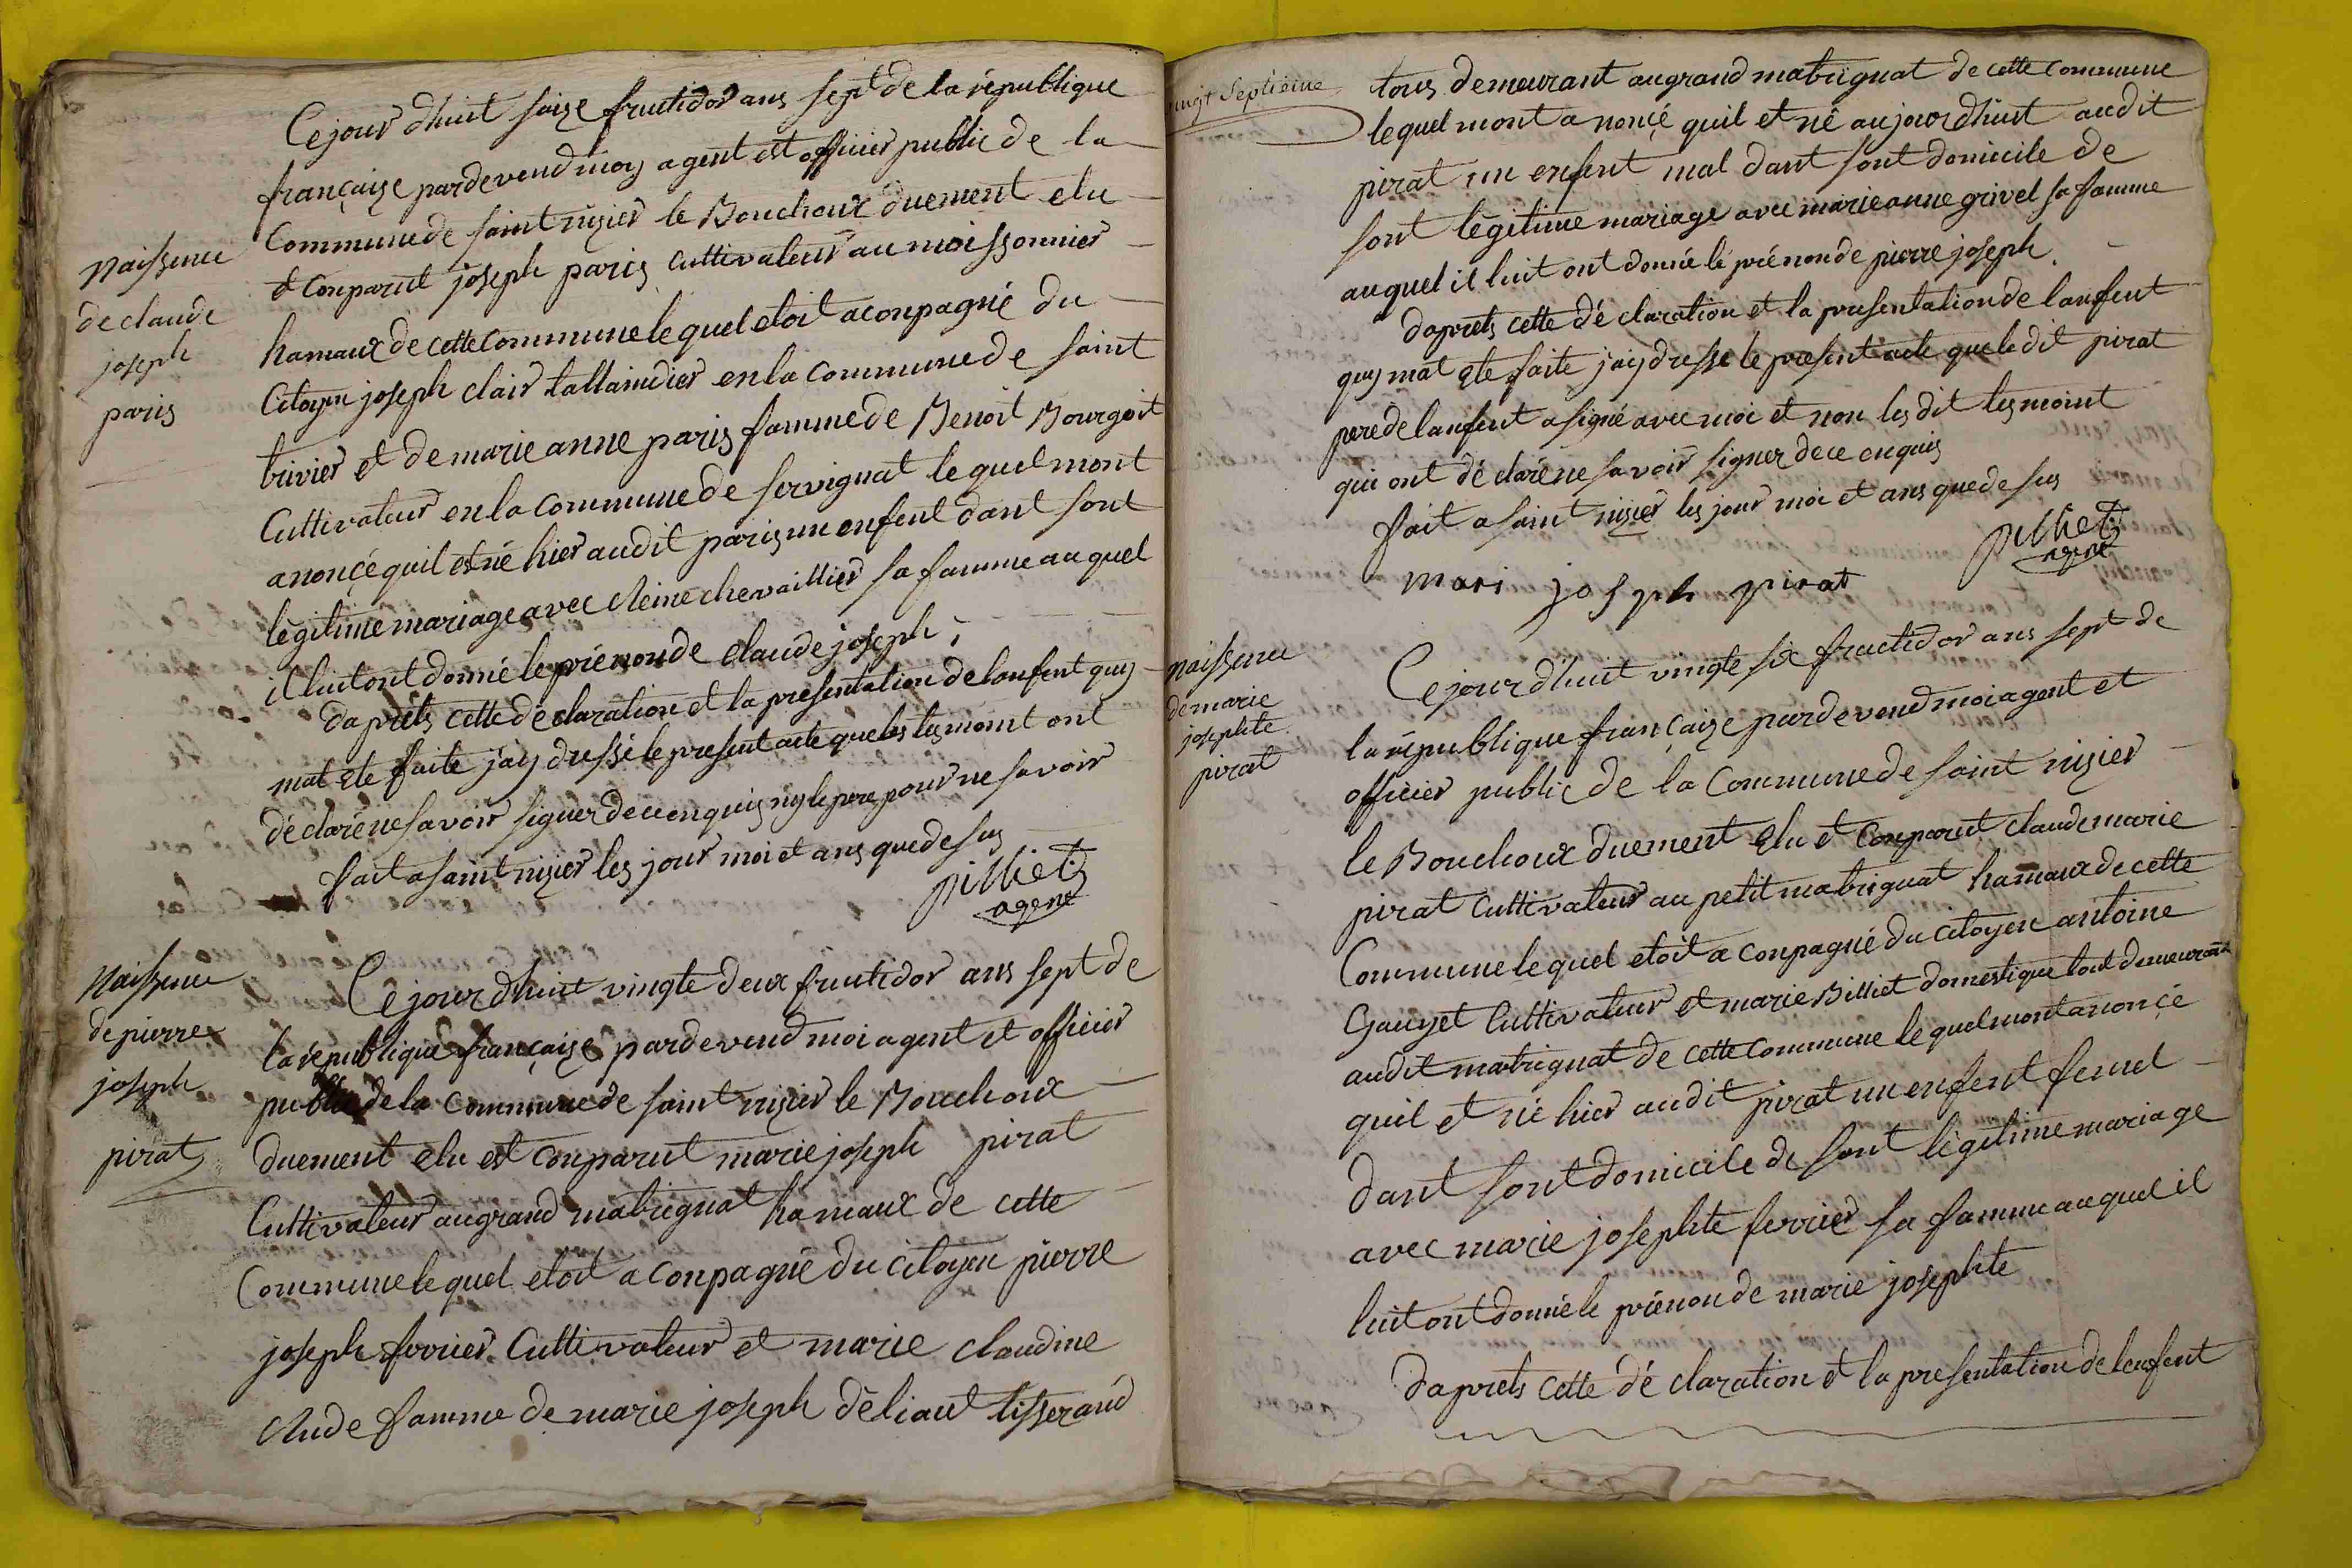 naissence
de claude
joseph
paris
Ce jour dhuit saize fructidor ans sept de la république
françaize pardevend moy agent est officier public de la
Commune de saint nizier le Bouchoux duement elu
et Conparut joseph paris cultivateur au moissonnier
hamaux de cette commune le quel etoit aconpagné du
Citoyen joseph clair tallaindier en la commune de saint
trivier et de marie anne paris famme de Benoit Bourgoit
Cultivateur en la commune de servignat le quel mont
anonçé quil et né hier audit paris un enfent dant sont
légitime mariage avec cleine chevaillier sa famme au quel
il luit ont donné le prénon de claude joseph
daprêts cette déclaration et la presentation de lanfent quy
mat ete faite jay dressé le present acte que les tesmoint ont
déclaré ne savoir signer de ce enquis ny le pere pour ne savoir
fait a saint nizier les jour moi et ans que de sus
pilliet
agent
Naissence
de pierre
joseph
pirat
Ce jour dhuit vingte deux fructidor ans sept de
la république françaize pardevend moi agent et officier
public de la commune de saint nizier le Bouchoux
duement elu et conparut marie joseph pirat
Cultivateur au grand matrignat hamaux de cette
Commune le quel etoit aconpagné du citoyen pierre
joseph ferrier Cultivateur et marie claudine
clude famme de marie joseph déliaut tisserand
vingt septieme
tous demeurant au grand matrignat de cette commune
le quel mont anonçé quil et né aujourdhuit audit
pirat un enfent mal dant sont domicile de
sont légitime mariage avec marie anne grivel sa famme
au quel il luit ont donné le prénon de pierre joseph
daprets cette déclaration et la presentation de lanfent
quy mat ete faite jay dressé le present acte que ledit pirat
pere de lanfent a signé avec moi et non les dit tesmoint
qui ont déclaré ne savoir signer de ce enquis
fait a saint nizier les jour moi et ans que de sus
pilliet
agent
mari joseph pirat
naissence
de marie
josephte
pirat
Ce jour dhuit vingte six fructidor ans sept de
la république françaize pardevend moi agent et
officier public de la Commune de saint nizier
le Bouchoux duement elu et Conparut claude marie
pirat cultivateur au petit matrignat hamaux de cette
Commune le quel etoit aconpagné du citoyen antoine
Gauyet Cultivateur et marie Billiet domestique tout demeurant
audit matrignat de cette commune le quel mont anonçé
quil et né hier audit pirat un enfent femel
dant sont domicile de sont légitime mariage
avec marie josephte ferrier sa famme au quel il
luit ont donné le prénon de marie josephte
daprets cette déclaration et la presentation de lenfent